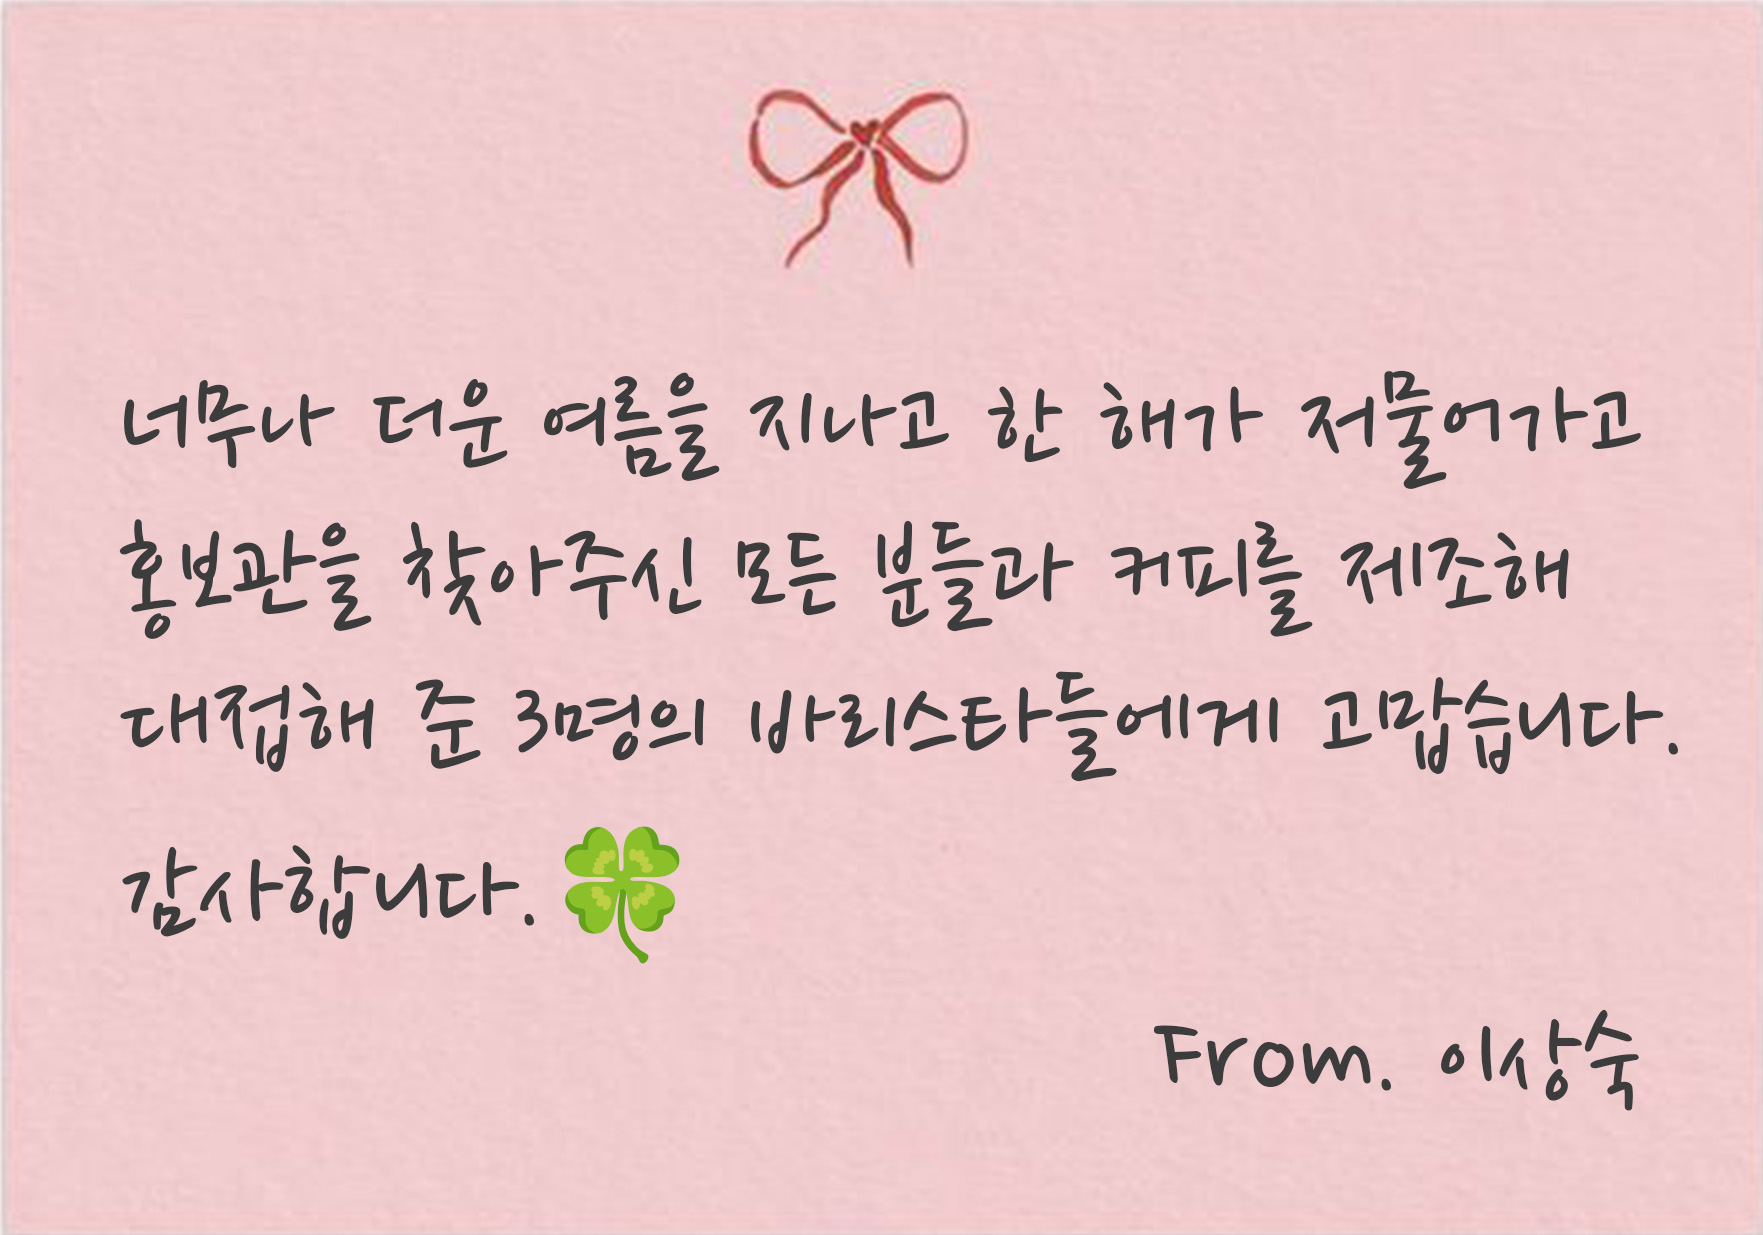 너무나 더운 여름을 지나고 한 해가 저물어가고
홍보관을 찾아주신 모든 분들과 커피를 제조해
대접해 준 3명의 바리스타들에게 고맙습니다.
감사합니다.🍀
From. 이상숙